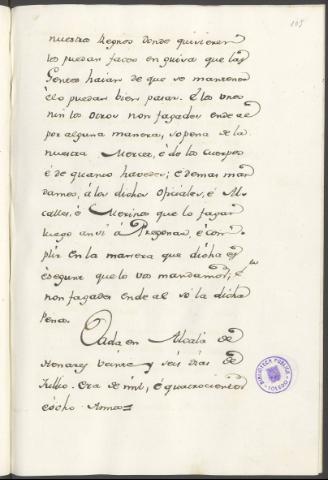 105
nuestros Regnos donde quisieren
los puedan facer en guisa que las
Gentes haian de que se mantener
é lo puedan bien pasar. E los unos
nin los otros non fagades ende al
por alguna manera, sopena de la
nuestra Merced, é de los cuerpos
é de quanto havedes; é demas man
damos, á los dichos oficiales, é Al
calles, é Merinos que lo fagan
luego ansi á Pregonar, é con
plir en la manera que dicha es
é segunt que lo vos mandamos; é
non fagades ende al so la dicha
Pena.
Dada en Alcalá de
Henares veinte y seis dias de
Julio. Era de mil, é quatrocientos
é ocho Annos=
BIBLIOTECA PUBLICA
TOLEDO